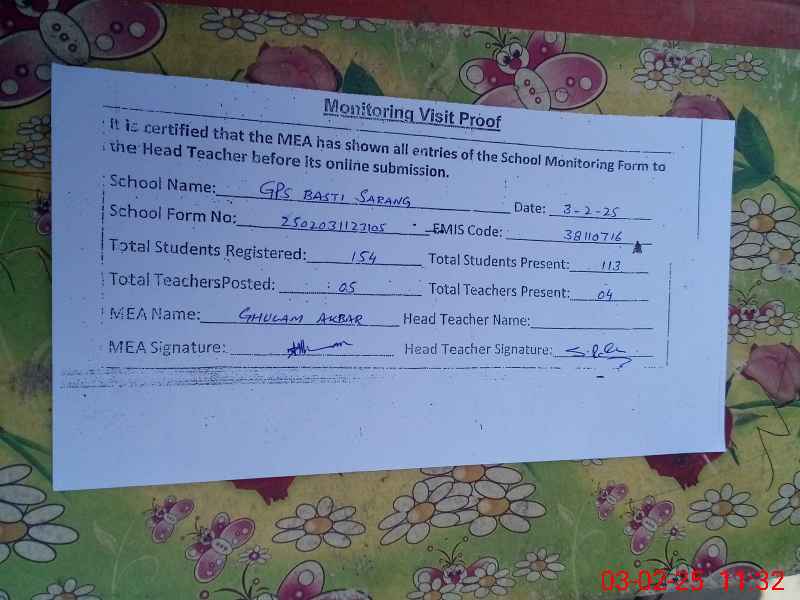 Monitoring Visit Proof
It is certified that the MEA has shown all entries of the School Monitoring Form to
the Head Teacher before its online submission.
School Name: GPS BASTI SARANG Date: 3-2-25
School Form No: 2502031123105 EMIS Code: 38110716
Total Students Registered: 154 Total Students Present: 113
Total TeachersPosted: 05 Total Teachers Present: 04
MEA Name: GHULAM AKBAR Head Teacher Name:
MEA Signature: Head Teacher Signature:
03-02-25 11:32